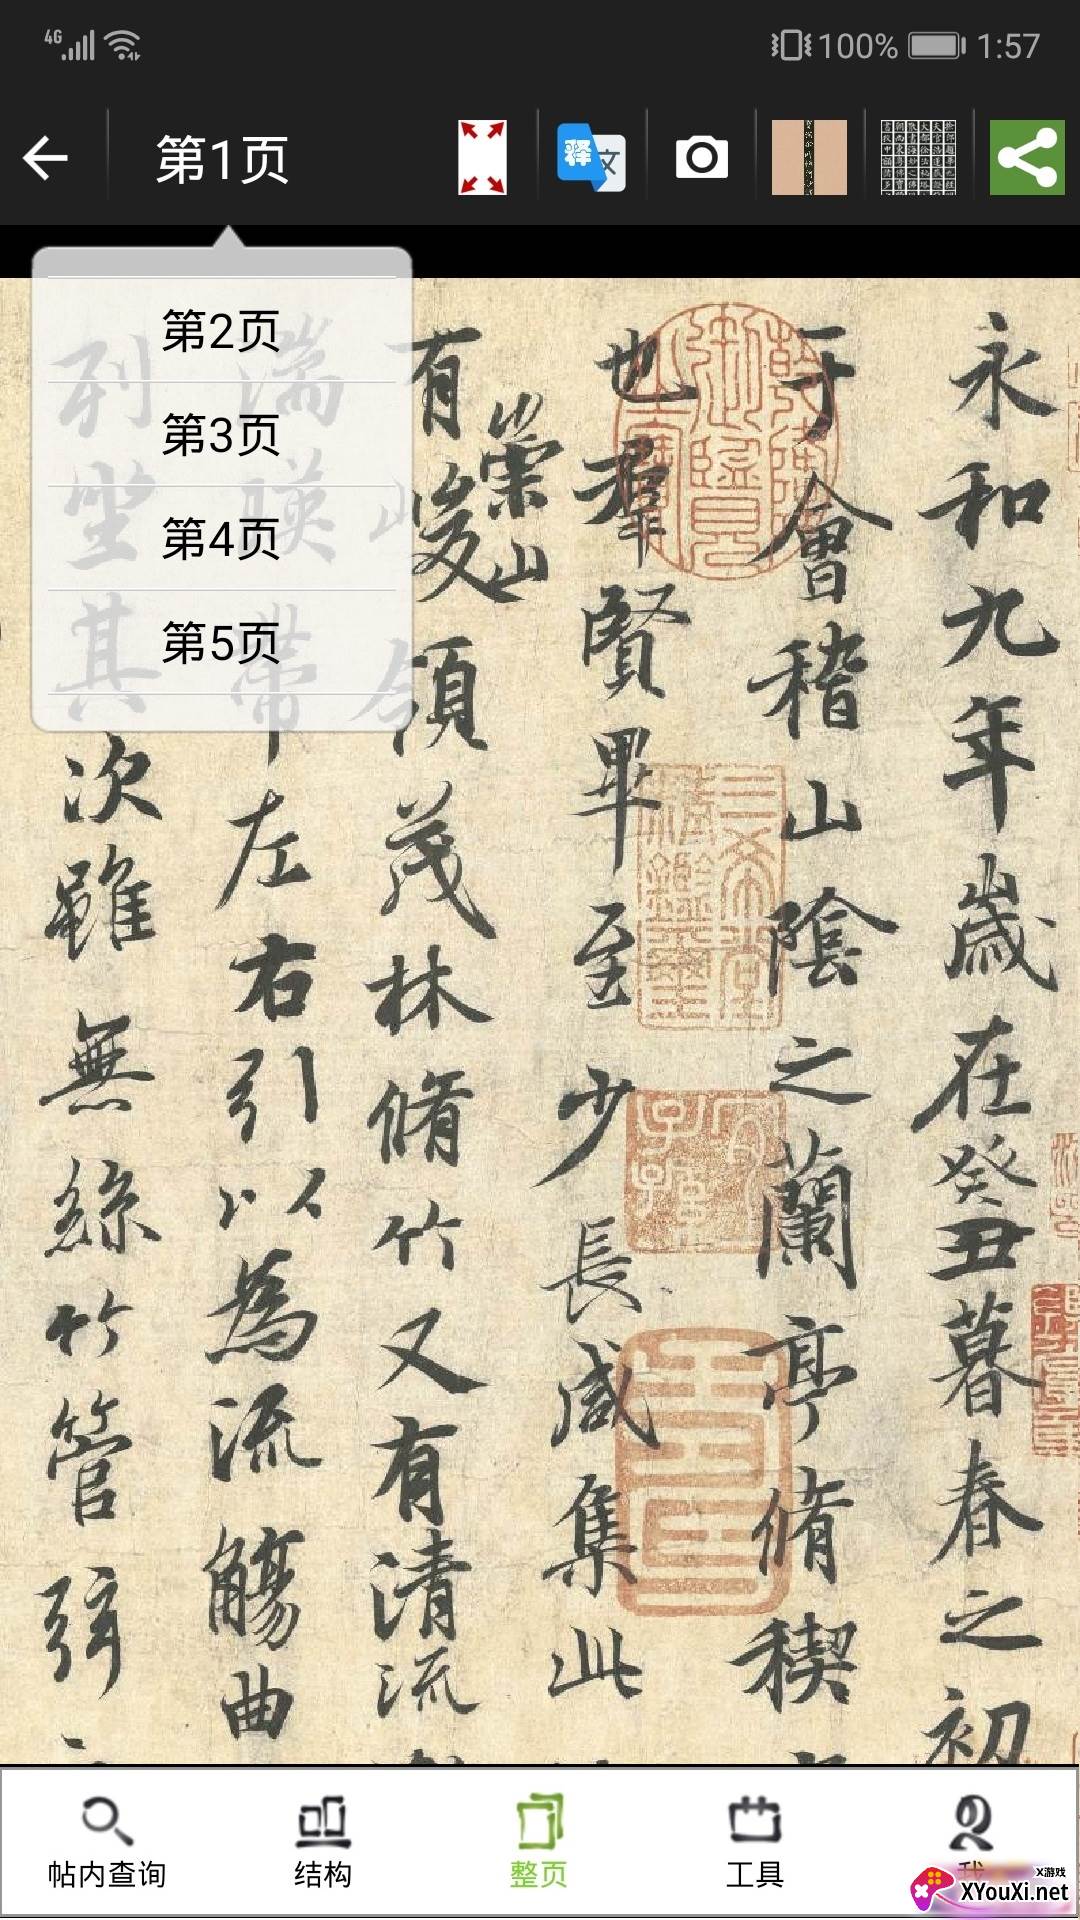 4G 100% 1:57
第1页
释 文
第2页
第3页
第4页
第5页
永和九年歲在癸丑暮春之初
于會稽山陰之蘭亭脩禊
也羣賢畢至少長咸集此
崇山
有峻領茂林脩竹又有清流
湍暎帶左右引以為流觴曲
列坐其次雖無絲竹管弦
帖内查询
结构
整页
工具
我
X游戏
XYouXi.net